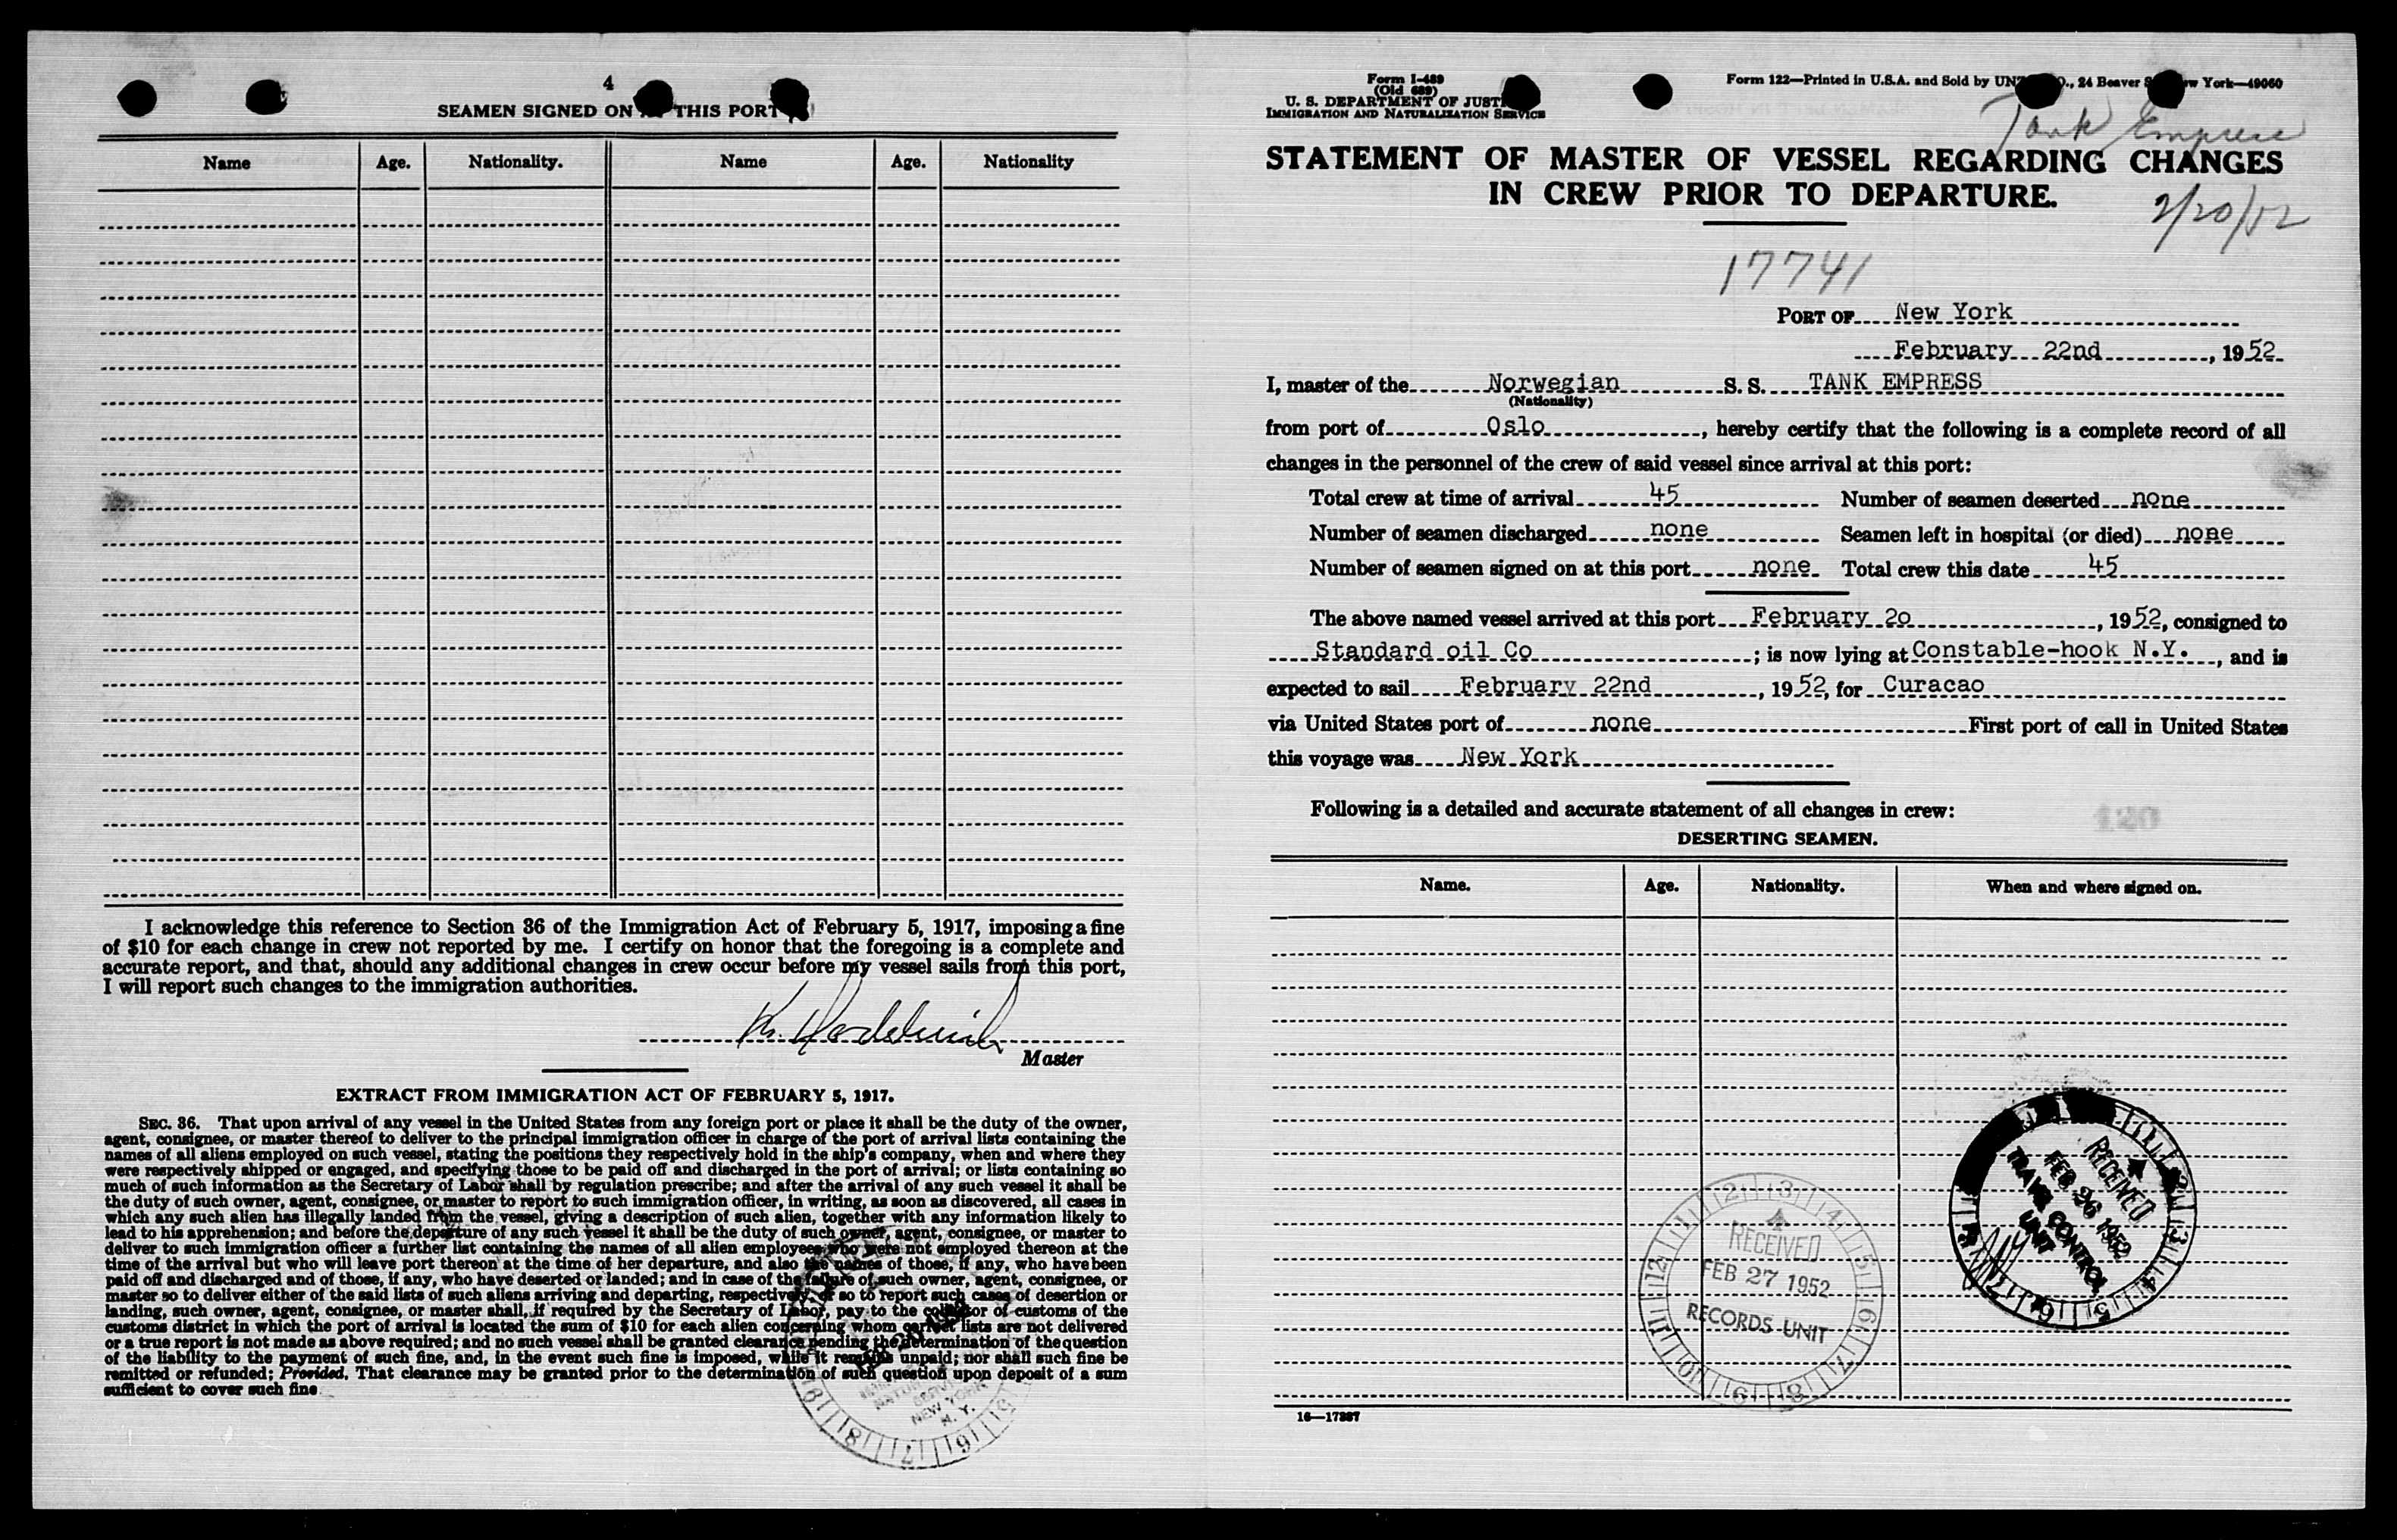 4
SEAMEN SIGNED ON THIS PORT
Name Age. Nationality. Name Age. Nationality
I acknowledge this reference to Section 36 of the Immigration Act of February 5, 1917, imposing a fine
of $10 for each change in crew not reported by me. I certify on honor that the foregoing is a complete and
accurate report, and that, should any additional changes in crew occur before my vessel sails from this port,
I will report such changes to the immigration authorities.
Master
EXTRACT FROM IMMIGRATION ACT OF FEBRUARY 5, 1917.
SEC. 36. That upon arrival of any vessel in the United States from any foreign port or place it shall be the duty of the owner,
agent, consignee, or master thereof to deliver to the principal immigration officer in charge of the port of arrival lists containing the
names of all aliens employed on such vessel, stating the positions they respectively hold in the ship's company, when and where they
were respectively shipped or engaged, and specifying those to be paid off and discharged in the port of arrival; or lists containing so
much of such information as the Secretary of Labor shall by regulation prescribe; and after the arrival of any such vessel it shall be
the duty of such owner, agent, consignee, or master to report to such immigration officer, in writing, as soon as discovered, all cases in
which any such alien has illegally landed from the vessel, giving a description of such alien, together with any information likely to
lead to his apprehension; and before the departure of any such vessel it shall be the duty of such owner, agent, consignee, or master to
deliver to such immigration officer a further list containing the names of all alien employees who were not employed thereon at the
time of the arrival but who will leave port thereon at the time of her departure, and also the names of those, if any, who have been
paid off and discharged and of those, if any, who have deserted or landed; and in case of the failure of such owner, agent, consignee, or
master so to deliver either of the said lists of such aliens arriving and departing, respectively, or so to report such cases of desertion or
landing, such owner, agent, consignee, or master shall, if required by the Secretary of Labor, pay to the collector of customs of the
customs district in which the port of arrival is located the sum of $10 for each alien concerning whom correct lists are not delivered
or a true report is not made as above required; and no such vessel shall be granted clearance pending the determination of the question
of the liability to the payment of such fine, and, in the event such fine is imposed, while it remains unpaid; nor shall such fine be
remitted or refunded; Provided, That clearance may be granted prior to the determination of such question upon deposit of a sum
sufficient to cover such fine
NEW YORK
N. Y.
Form I-489
(Old 689)
U. S. DEPARTMENT OF JUST
IMMIGRATION AND NATURALIZATION SERVICE
Form 122—Printed in U.S.A. and Sold by UNZ O., 24 Beaver S w York—49060
Tank Empress
STATEMENT OF MASTER OF VESSEL REGARDING CHANGES
IN CREW PRIOR TO DEPARTURE.
2/20/52
17741
PORT OF New York
February 22nd, 1952
I, master of the Norwegian S. S. TANK EMPRESS
(Nationality)
from port of Oslo, hereby certify that the following is a complete record of all
changes in the personnel of the crew of said vessel since arrival at this port:
Total crew at time of arrival 45 Number of seamen deserted none
Number of seamen discharged none Seamen left in hospital (or died) none
Number of seamen signed on at this port none Total crew this date 45
The above named vessel arrived at this port February 20, 1952, consigned to
Standard oil Co; is now lying at Constable-hook N.Y., and is
expected to sail February 22nd, 1952, for Curacao
via United States port of none First port of call in United States
this voyage was New York
Following is a detailed and accurate statement of all changes in crew:
120
DESERTING SEAMEN.
Name. Age. Nationality. When and where signed on.
RECEIVED
FEB 26 1952
TRAVEL CONTROL
UNIT
RECEIVED
FEB 27 1952
RECORDS UNIT
16—17887